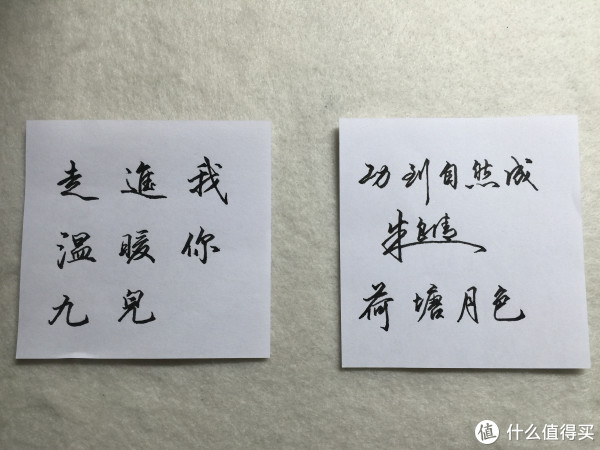 走進我
溫暖你
九兒
功到自然成
朱自清
荷塘月色
值 什么值得买